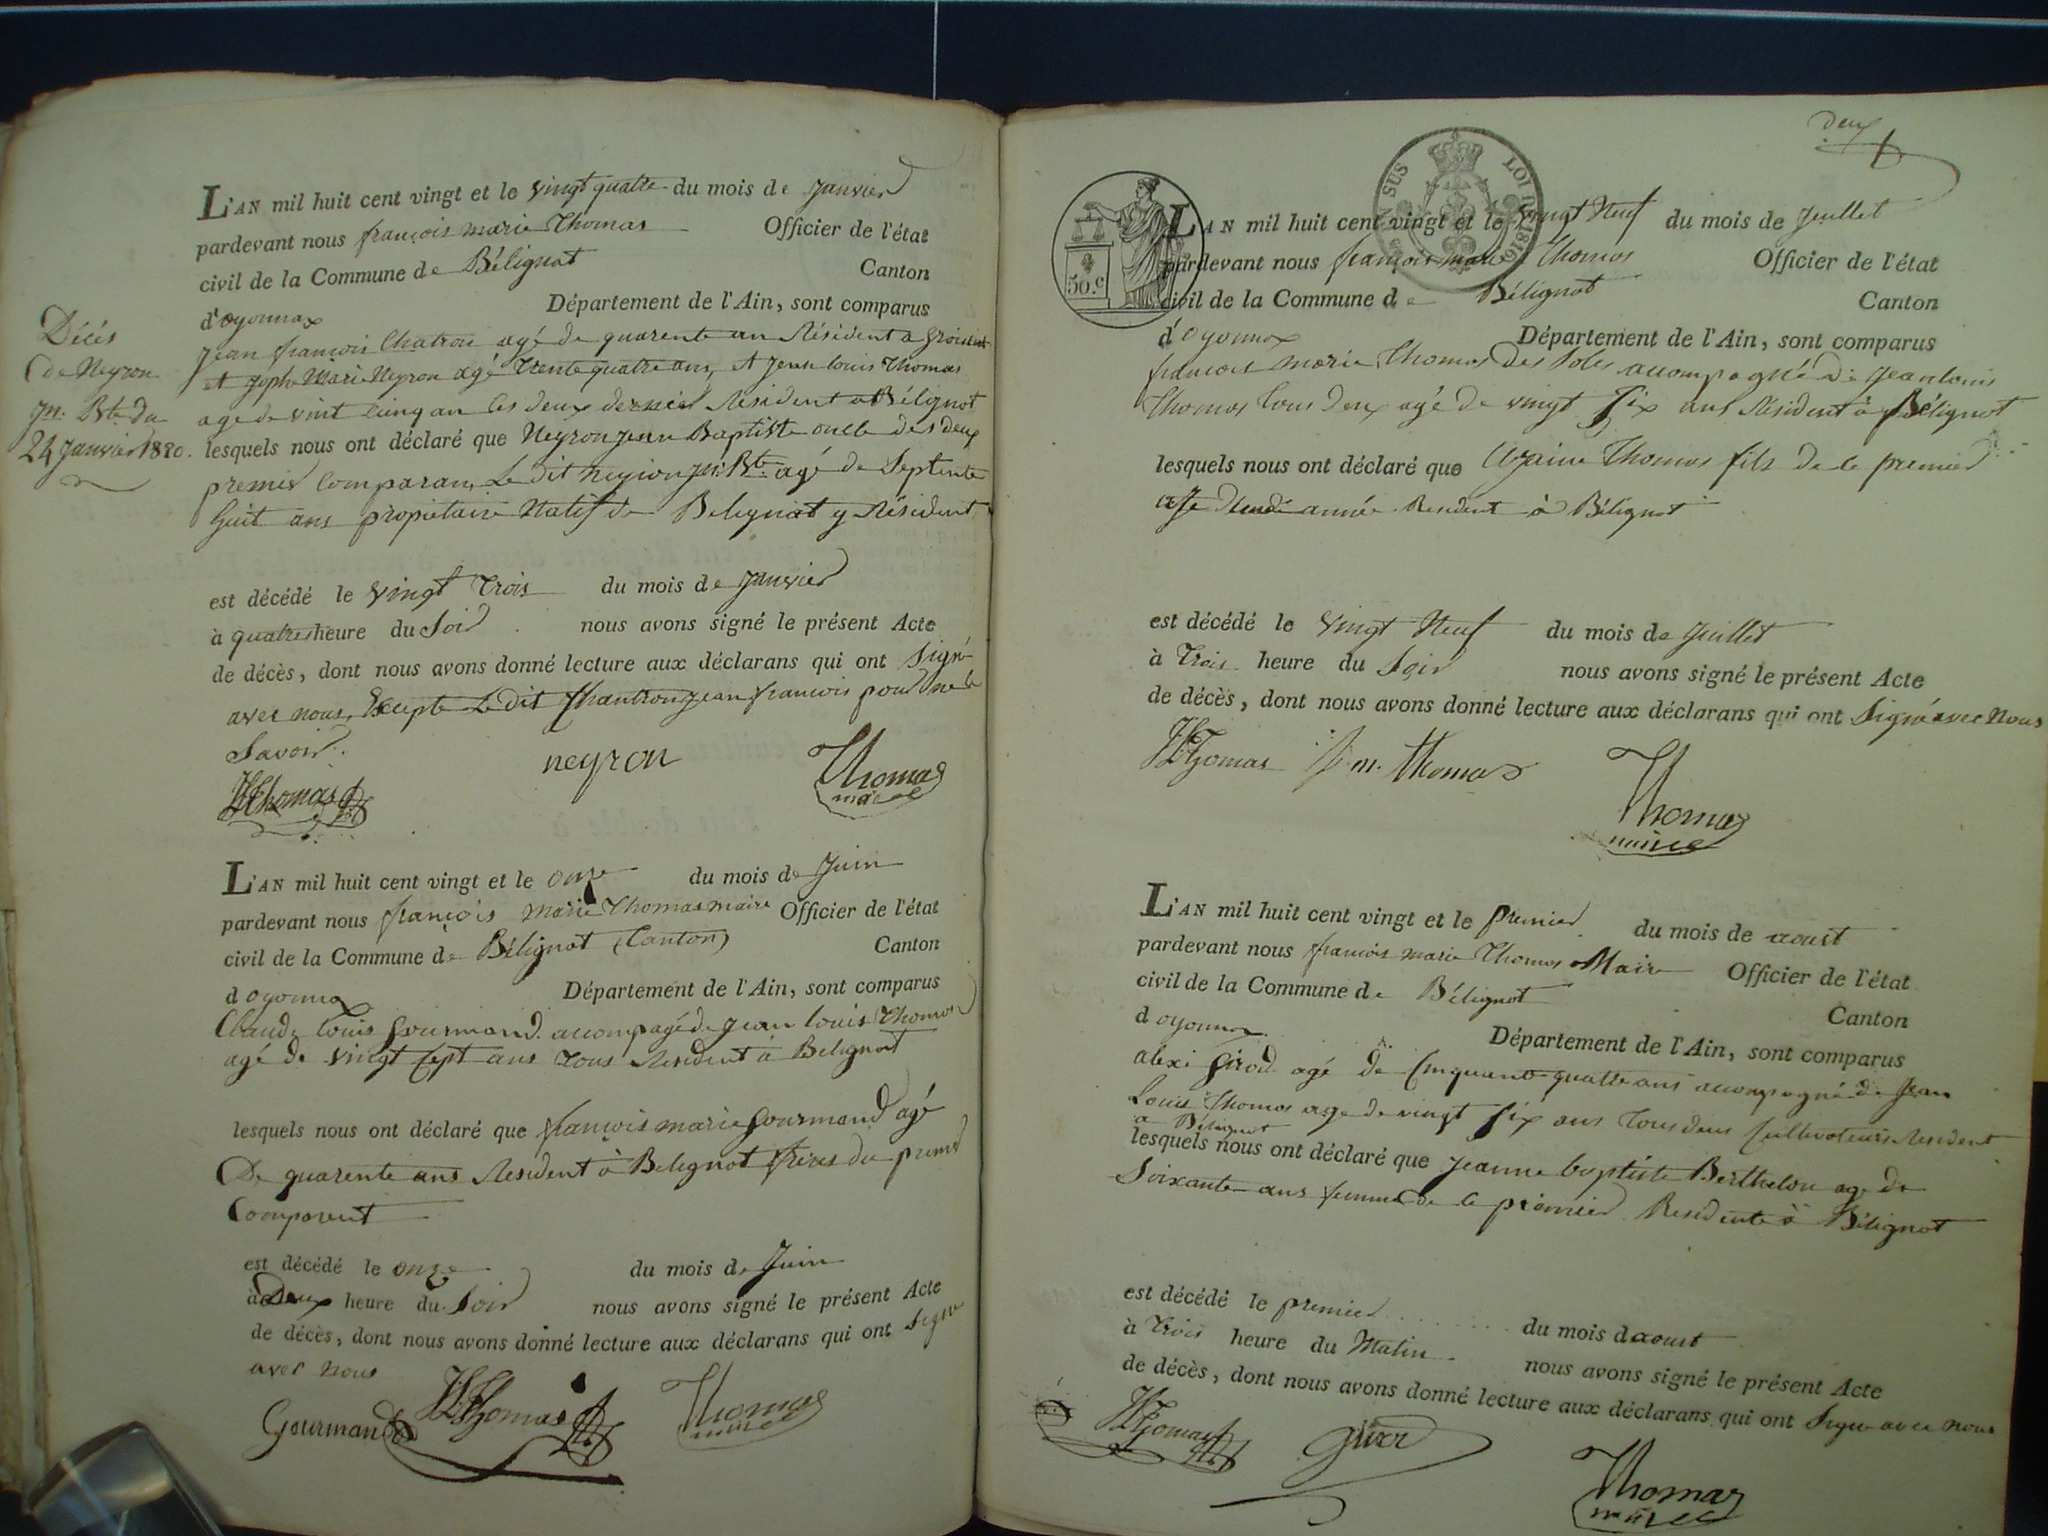 L'AN mil huit cent vingt et le vingt quatre du mois de Janvier
pardevant nous françois marie Thomas Officier de l'état
civil de la Commune de Bélignat Canton
d'oyonnax Département de l'Ain, sont comparus
Décés
de Neyron
Jn. Bte du
24 Janvier 1820.
Jean françois Chatron agé de quarente an Résident a
et Joph Marie Neyron agé trente quatre ans, et Jean louis Thomas
age de vint cinq an les deux dernier Résident a Bélignat
lesquels nous ont déclaré que Neyron Jean Baptiste oncle des deux
premier Comparan, Le dit neyron Jn. Bte. agé de Septente
huit ans propiétaire Natif de Belignat y Résident
est décédé le vingt trois du mois de Janvier
à quatre heure du Soir nous avons signé le présent Acte
de décès, dont nous avons donné lecture aux déclarans qui ont Signé
avec nous, Excepte Le dit Chantron jean françois pour ne le
Savoir.
Thomas neyron Thomas
maire
L'AN mil huit cent vingt et le onze du mois de Juin
pardevant nous françois marie Thomas maire Officier de l'état
civil de la Commune de Bélignat (Canton) Canton
d oyonnax Département de l'Ain, sont comparus
Claude Louis Gourmand accompagé de Jean louis Thomas
agé de vingt sept ans tous Resident à Belignat
lesquels nous ont déclaré que françois marie Gourmand agé
De quarente ans Resident à Belignat frere du premier
Comparent
est décédé le onze du mois de Juin
à Deux heure du Soir nous avons signé le présent Acte
de décès, dont nous avons donné lecture aux déclarans qui ont Signé
avec nous
Gourmand Thomas Thomas
maire
deux
SUS LOI DE 1816
50.c
L'AN mil huit cent vingt et le vingt Neuf du mois de Juillet
pardevant nous françois marie Thomas Officier de l'état
civil de la Commune de Bélignat Canton
d'oyonnax Département de l'Ain, sont comparus
francois marie Thomas des Soles accompagné de Jean louis
Thomas tous deux agé de vingt Six ans Résident à Bélignat
lesquels nous ont déclaré que Thomas fils de le premier
année Resident à Bélignat
est décédé le vingt Neuf du mois de Juillet
à trois heure du Soir nous avons signé le présent Acte
de décès, dont nous avons donné lecture aux déclarans qui ont Signé avec Nous
Thomas f. m. thomas
Thomas
maire
L'AN mil huit cent vingt et le premier du mois de aoust
pardevant nous francois marie Thomas Maire Officier de l'état
civil de la Commune de Bélignat Canton
d oyonnax. Département de l'Ain, sont comparus
alexi Girod agé de Cinquante quatre ans accompagné de Jean
Louis Thomas age de vingt six ans tous deux Cultivateurs Resident
a Bélignat
lesquels nous ont déclaré que Jeanne baptiste Berthelon age de
Soixante ans femme de le premier Residente à Bélignat
est décédé le premier du mois d aoust
à trois heure du Matin nous avons signé le présent Acte
de décès, dont nous avons donné lecture aux déclarans qui ont Signe avec nous
Thomas
Thomas
maire